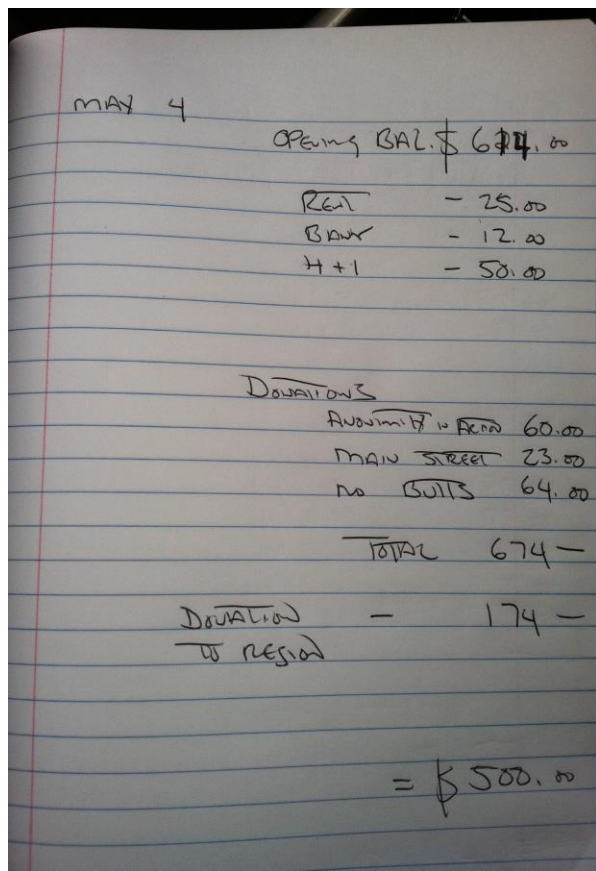 MAY 4
OPENING BAL. $ 614.00
RENT - 25.00
BANK - 12.00
H + I - 50.00
DONATIONS
ANONIMITY IN ACTION 60.00
MAIN STREET 23.00
NO BUTTS 64.00
TOTAL 674 —
DONATION — 174 —
TO REGION
= $ 500.00